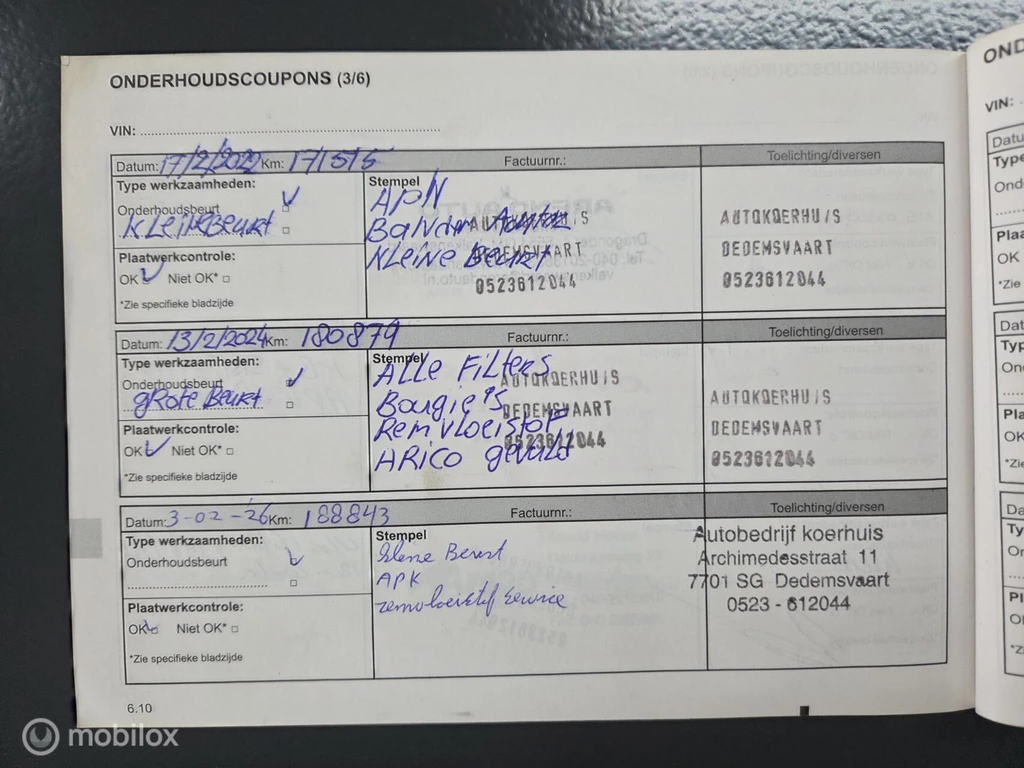 ONDERHOUDSCOUPONS (3/6)
VIN:
Datum: 17/2/2022 Km: 171515 Factuurnr.: Toelichting/diversen
Type werkzaamheden:
Onderhoudsbeurt
Kleine Beurt
Plaatwerkcontrole:
OK Niet OK*
*Zie specifieke bladzijde
Stempel
Kleine Beurt
AUTOKOERHUIS
DEDEMSVAART
0523612044
AUTOKOERHUIS
DEDEMSVAART
0523612044
Datum: 13/2/2024 Km: 180879 Factuurnr.: Toelichting/diversen
Type werkzaamheden:
Onderhoudsbeurt
grote Beurt
Plaatwerkcontrole:
OK Niet OK*
*Zie specifieke bladzijde
Stempel
Alle Filters
Bougie's
Remvloeistof
Arico gevuld
AUTOKOERHUIS
DEDEMSVAART
0523612044
AUTOKOERHUIS
DEDEMSVAART
0523612044
Datum: 3-02-26 Km: 188843 Factuurnr.: Toelichting/diversen
Type werkzaamheden:
Onderhoudsbeurt
Plaatwerkcontrole:
OK Niet OK*
*Zie specifieke bladzijde
Stempel
APK
Autobedrijf koerhuis
Archimedesstraat 11
7701 SG Dedemsvaart
0523 - 612044
6.10
mobilox